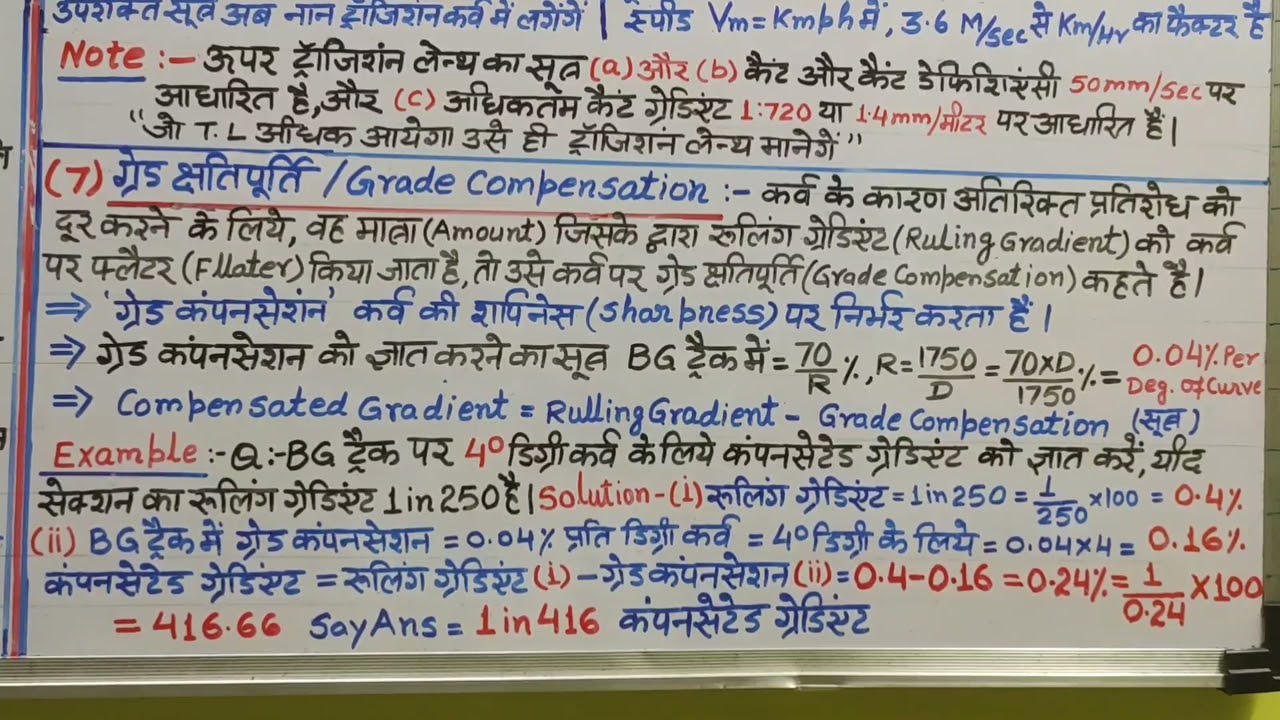 उपरोक्त सूत्र अब नान ट्राँजिशन कर्व में लगेंगें | स्पीड Vm = Kmph में, 3.6 M/sec से Km/Hr का फैक्टर है
Note :- ऊपर ट्रॉजिशंन लेन्थ का सूत्र (a) और (b) कैंट और कैंट डेफिशिएंसी 50mm/sec पर
आधारित है, और (c) अधिकतम कैंट ग्रेडिएंट 1:720 या 1.4mm/मीटर पर आधारित हैं।
"जो T.L अधिक आयेगा उसे ही ट्रॉजिशंन लेन्थ मानेगें"
(7) ग्रेड क्षतिपूर्ति / Grade Compensation :- कर्व के कारण अतिरिक्त प्रतिरोध को
दूर करने के लिये, वह मात्रा (Amount) जिसके द्वारा रूलिंग ग्रेडिएंट (Ruling Gradient) को कर्व
पर फ्लैटर (Fllater) किया जाता है, तो उसे कर्व पर ग्रेड क्षतिपूर्ति (Grade Compensation) कहते है।
⇒ 'ग्रेड कंपनसेशंन' कर्व की शार्पिनेस (Sharpness) पर निर्भर करता हैं।
⇒ ग्रेड कंपनसेशन को ज्ञात करने का सूत्र BG ट्रैक में = 70/R %, R = 1750/D = 70×D/1750 % = 0.04% Per Deg. of Curve
⇒ Compensated Gradient = Rulling Gradient - Grade Compensation (सूत्र)
Example :- Q:- BG ट्रैक पर 4° डिग्री कर्व के लिये कंपनसेटेड ग्रेडिएंट को ज्ञात करें, यदि
सेक्शन का रूलिंग ग्रेडिएंट 1 in 250 है। Solution - (i) रूलिंग ग्रेडिएंट = 1 in 250 = 1/250 ×100 = 0.4%
(ii) BG ट्रैक में ग्रेड कंपनसेशन = 0.04% प्रति डिग्री कर्व = 4° डिग्री के लिये = 0.04×4 = 0.16%
कंपनसेटेड ग्रेडिएंट = रूलिंग ग्रेडिएंट (i) - ग्रेड कंपनसेशन (ii) = 0.4-0.16 = 0.24% = 1/0.24 ×100
= 416.66 Say Ans = 1 in 416 कंपनसेटेड ग्रेडिएंट